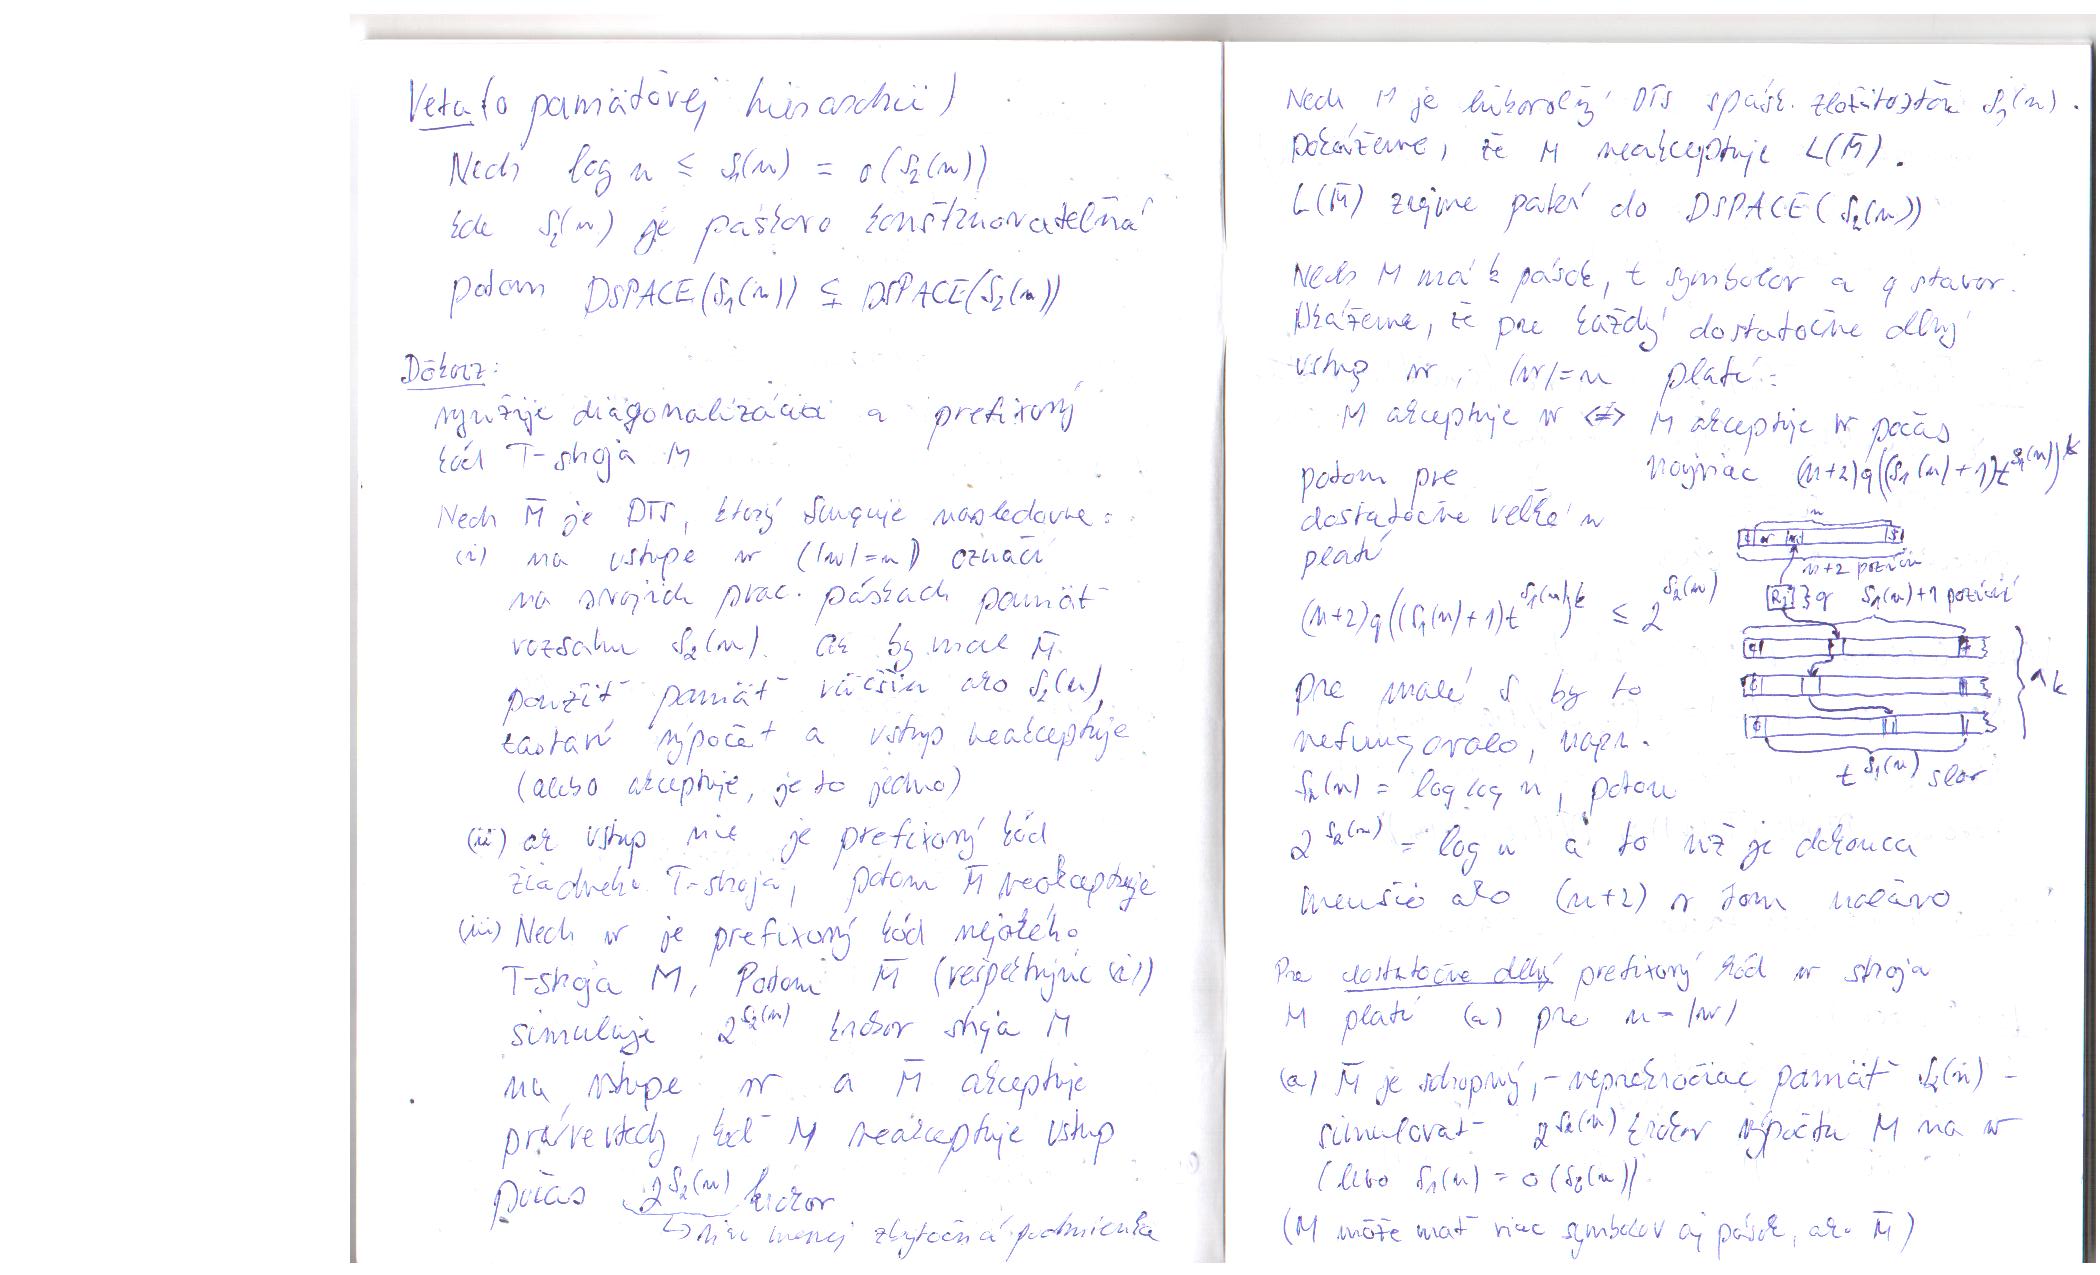 Veta (o pamäťovej hierarchii)
Nech log n ≤ S₁(n) = o(S₂(n))
kde S₂(n) je páskovo konštruovateľná
potom DSPACE(S₁(n)) ⊊ DSPACE(S₂(n))
Dôkaz:
využije diagonalizáciu a prefixový
kód T-stroja M
Nech M̄ je DTS, ktorý funguje nasledovne:
(i) na vstupe w (|w|=n) označí
na svojich prac. páskach pamäť
rozsahu S₂(n). Ak by mal M̄
použiť pamäť väčšiu ako S₂(n),
zastaví výpočet a vstup neakceptuje
(alebo akceptuje, je to jedno)
(ii) ak vstup nie je prefixový kód
žiadneho T-stroja, potom M̄ neakceptuje
(iii) Nech w je prefixový kód nejakého
T-stroja M, Potom M̄ (rešpektujúc (i))
simuluje 2^S₂(n) krokov stroja M
na vstupe w a M̄ akceptuje
práve vtedy, keď M neakceptuje vstup
počas 2^S₂(n) krokov
↳ viac menej zbytočná podmienka
Nech M je ľubovoľný DTS s pásk. zložitosťou S₁(n).
Dokážeme, že M neakceptuje L(M̄).
L(M̄) zrejme patrí do DSPACE(S₂(n))
Nech M má k pások, t symbolov a q stavov.
Ukážeme, že pre každý dostatočne dlhý
vstup w, |w|=n platí:
M akceptuje w <=> M akceptuje w počas
najviac (n+2)q((S₁(n)+1)t^S₁(n))^k
potom pre
dostatočne veľké n
platí
(n+2)q((S₁(n)+1)t^S₁(n))^k ≤ 2^S₂(n)
n
n+2 pozícií
}q S₁(n)+1 pozícií
k
t^S₁(n) slov
pre malé S by to
nefungovalo, napr.
S₂(n) = log log n, potom
2^S₂(n) = log n a to už je dokonca
menšie ako (n+2) v tom naľavo
Pre dostatočne dlhý prefixový kód w stroja
M platí (a) pre n=|w|
(a) M̄ je schopný, - neprekročiac pamäť S₂(n) -
simulovať 2^S₂(n) krokov výpočtu M na w
(lebo S₁(n) = o(S₂(n))
(M môže mať viac symbolov aj pások, ako M̄)